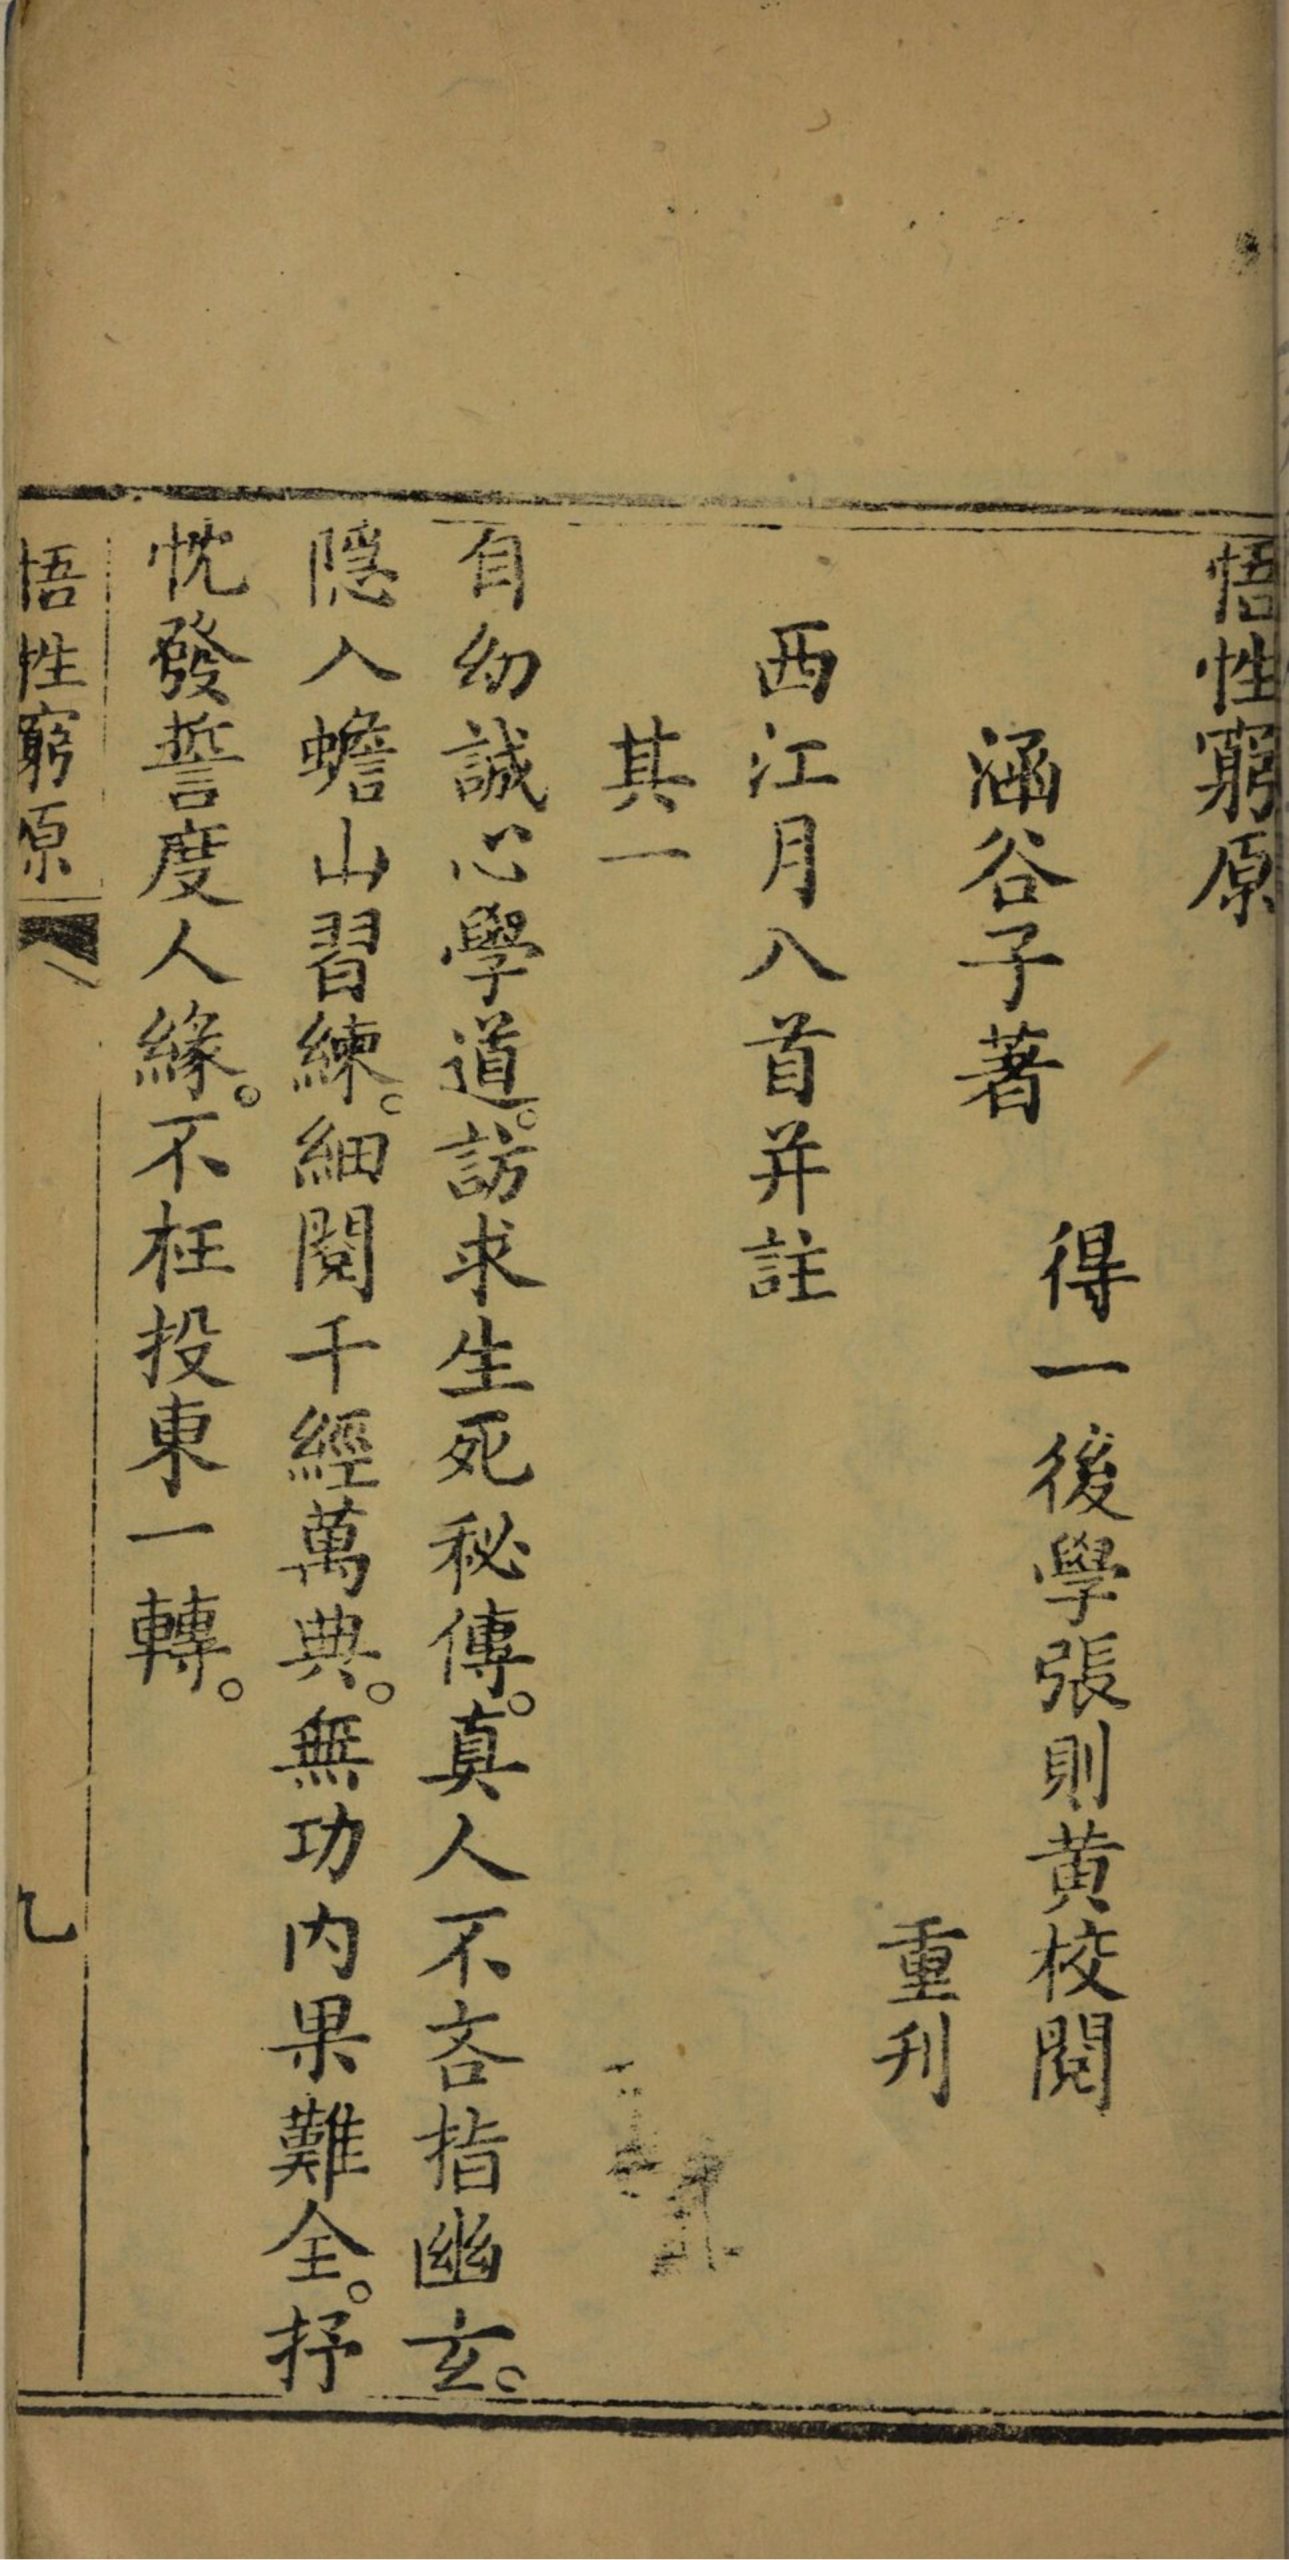 悟性窮原
得一後學張則黃校閱
涵谷子著
重刋
西江月八首并註
其一
自幼誠心學道。訪求生死秘傳。真人不吝指幽玄。
隱入蟾山習練。細閱千經萬典。無功內果難全。抒
忱發誓度人緣。不枉投東一轉。
悟性窮原